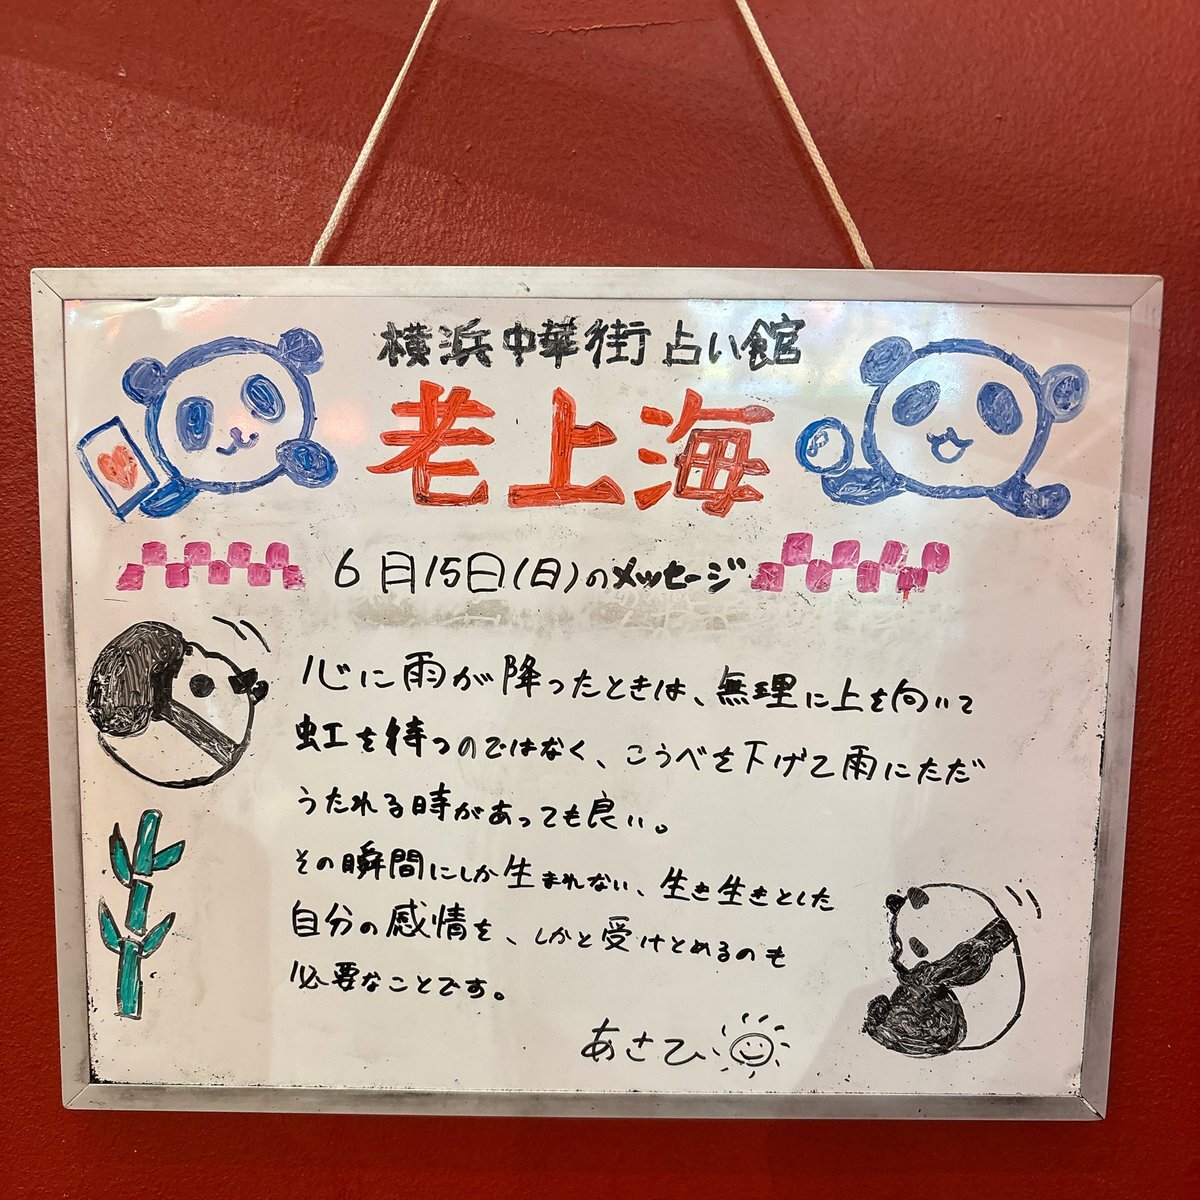 横浜中華街占い館
老上海
6月15日(日)のメッセージ
心に雨が降ったときは、無理に上を向いて
虹を待つのではなく、こうべを下げて雨にただ
うたれる時があっても良い。
その瞬間にしか生まれない、生き生きとした
自分の感情を、しかと受けとめるのも
必要なことです。
あさひ